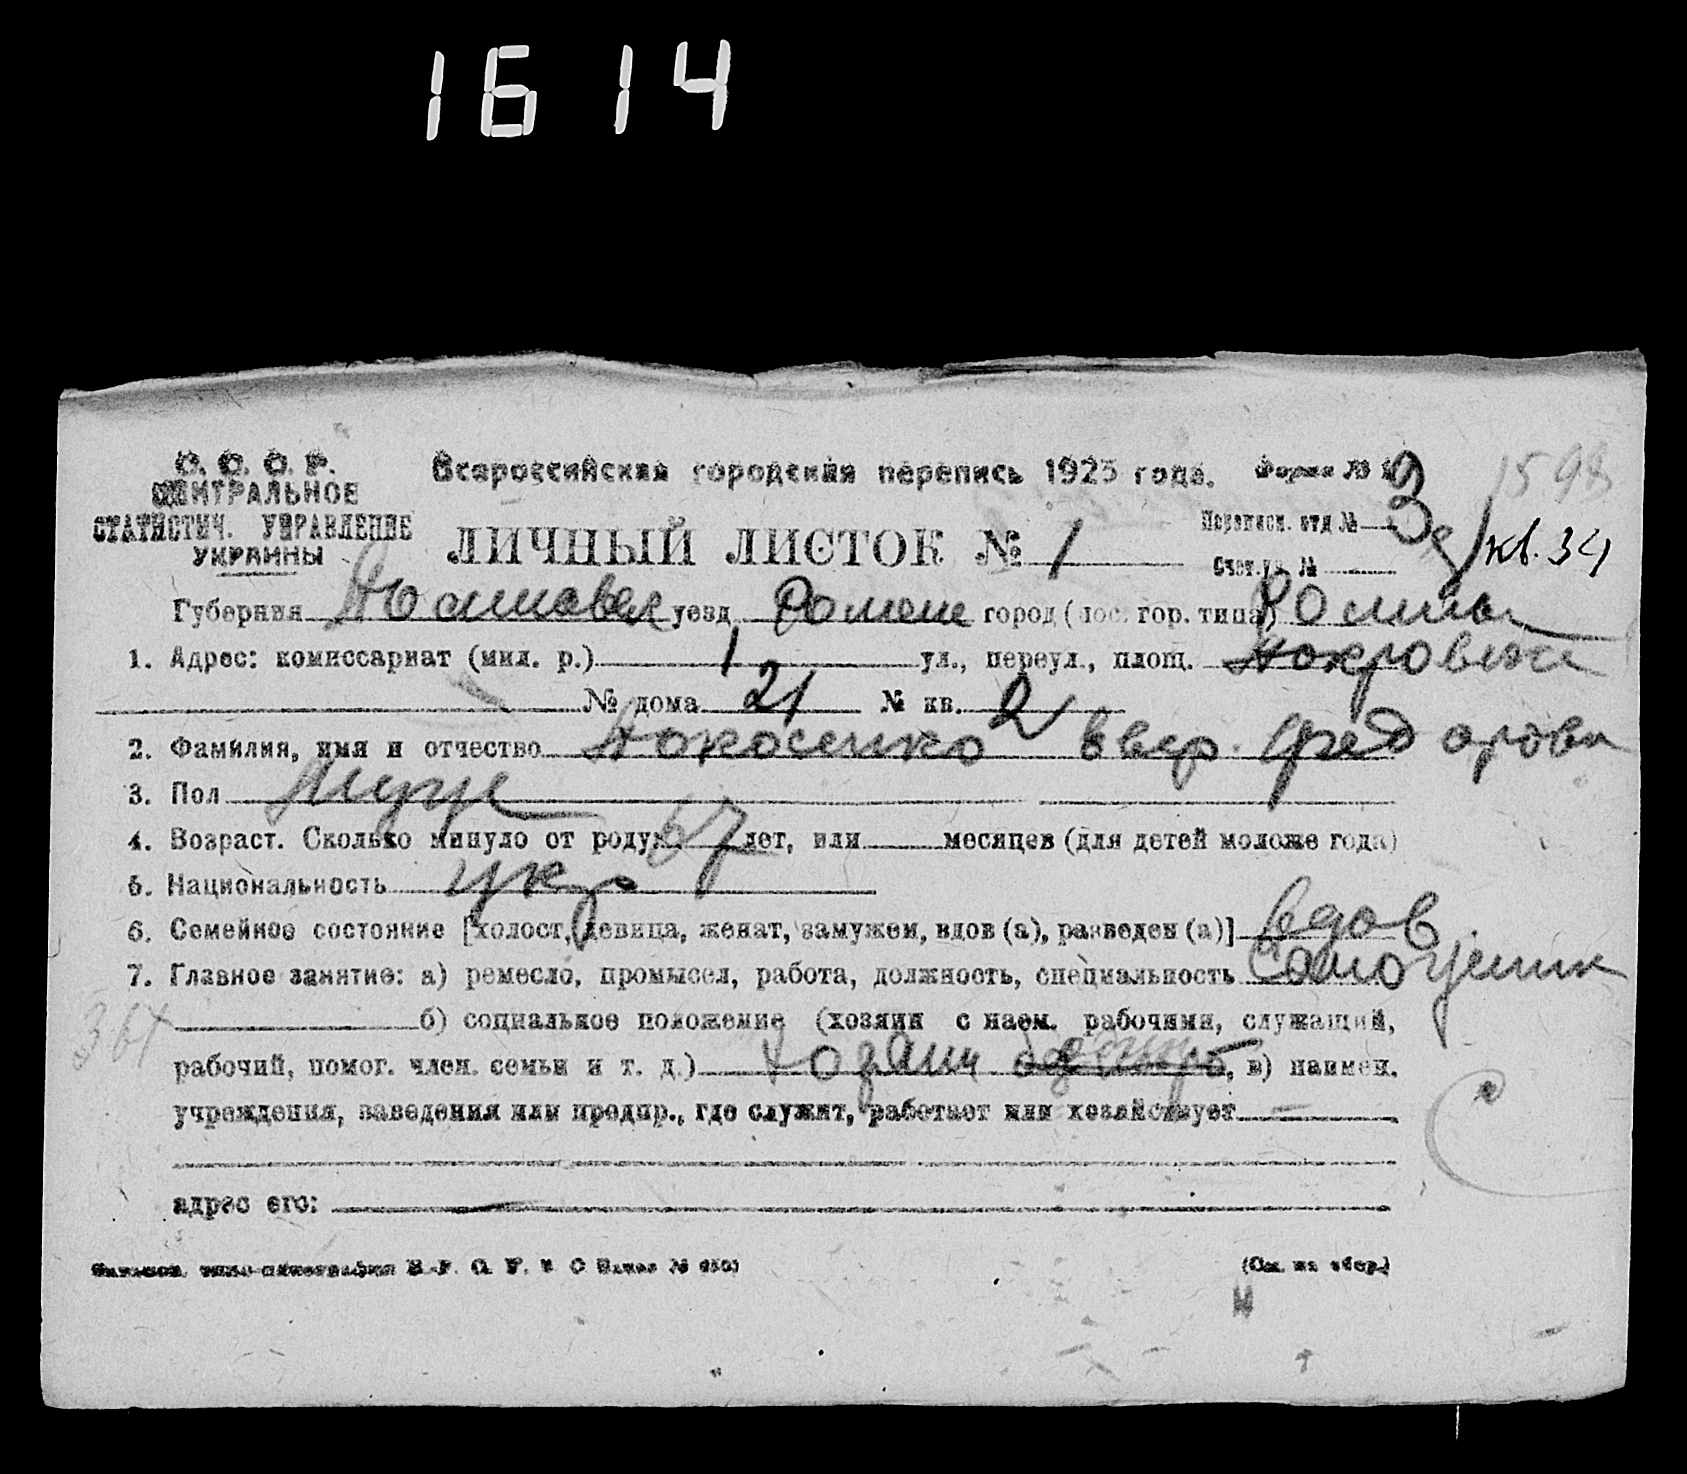 1614
С. С. С. Р.
ЦЕНТРАЛЬНОЕ
СТАТИСТИЧ. УПРАВЛЕНИЕ
УКРАИНЫ
Всероссийская городская перепись 1923 года.
Форма №
1598
ЛИЧНЫЙ ЛИСТОК № 1
Переписн. отд № 3
Счет. уч. №
кв. 34
Губерния уезд Ромен город (пос. гор. типа) Ромны
1. Адрес: комиссариат (мил. р.) 1 ул., переул., площ. Покровск
№ дома 21 № кв. 2
2. Фамилия, имя и отчество
3. Пол Муж
4. Возраст. Сколько минуло от роду: 67 лет, или месяцев (для детей моложе года)
5. Национальность укр
6. Семейное состояние [холост, девица, женат, замужем, вдов (а), разведен (а)] вдов
7. Главное занятие: а) ремесло, промысел, работа, должность, специальность
364
б) социальное положение (хозяин с наем. рабочими, служащий,
рабочий, помог. член. семьи и т. д.) хозяин, в) наимен.
учреждения, заведения или предпр., где служит, работает или хозяйствует
адрес его:
(См. на обор.)